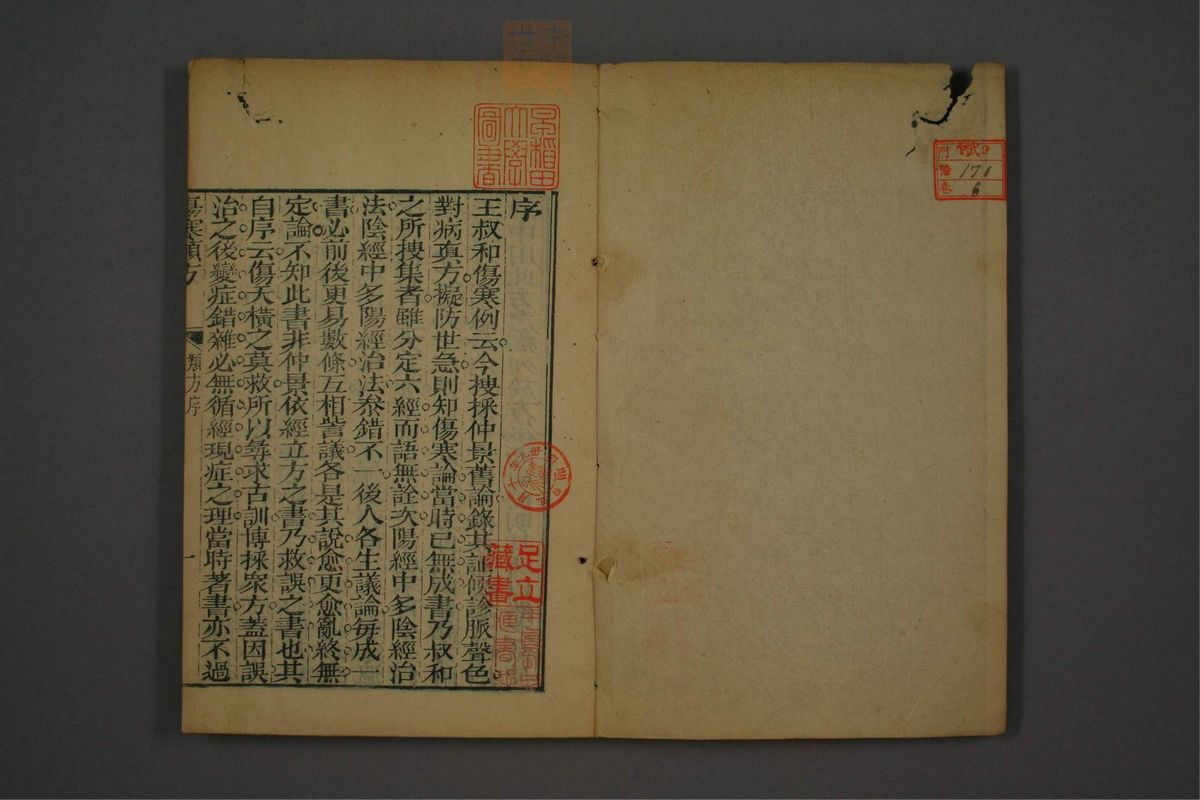 序
王叔和傷寒例云今搜採仲景舊論錄其証候診脈聲色
對病真方擬防世急則知傷寒論當時已無成書乃叔和
之所搜集者雖分定六經而語無詮次陽經中多陰經治
法陰經中多陽經治法叅錯不一後人各生議論每成一
書必前後更易數條互相訾議各是其說愈更愈亂終無
定論不知此書非仲景依經立方之書乃救誤之書也其
自序云傷夭橫之莫救所以尋求古訓博採衆方蓋因誤
治之後變症錯雜必無循經現症之理當時著書亦不過
傷寒類方
類方序
一
早稻田大學圖書
足立藏書
門
號 171
卷 6